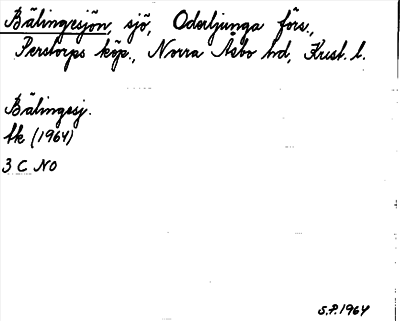 Bälingesjön, sjö, Oderljunga förs.,
Perstorps köp., Norra Åsbo hd, Krist. l.
Bälingesj.
tk (1964)
3 C NO
S.P. 1964